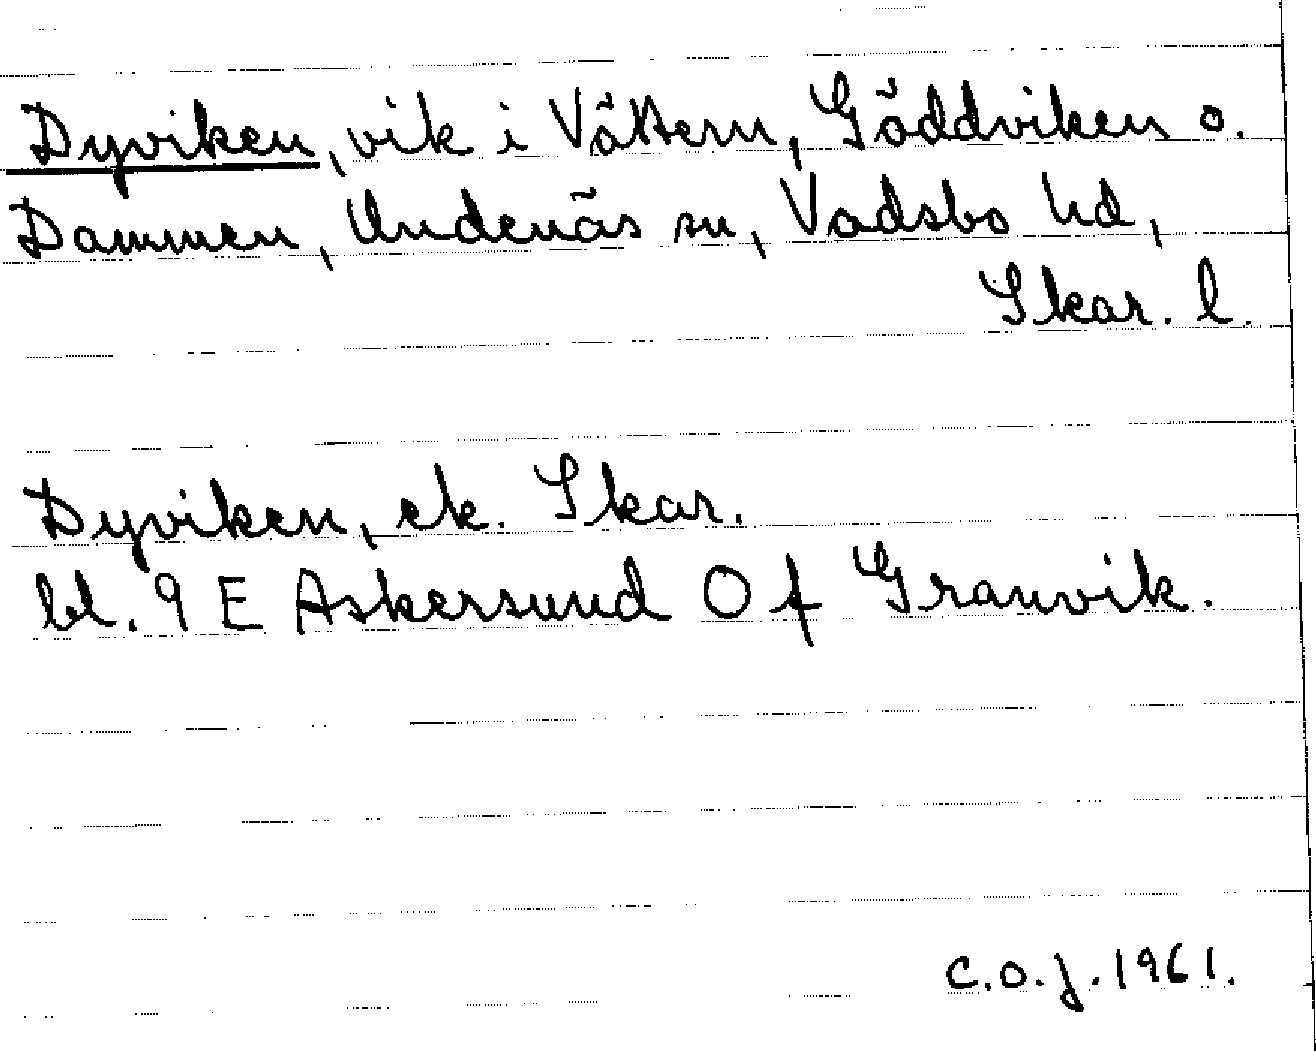 Dyviken, vik i Vättern, Gäddviken o.
Dammen, Undenäs sn, Vadsbo hd,
Skar. l.
Dyviken, ek. Skar.
bl. 9 E Askersund 0 f Granvik.
C.O.J. 1961.